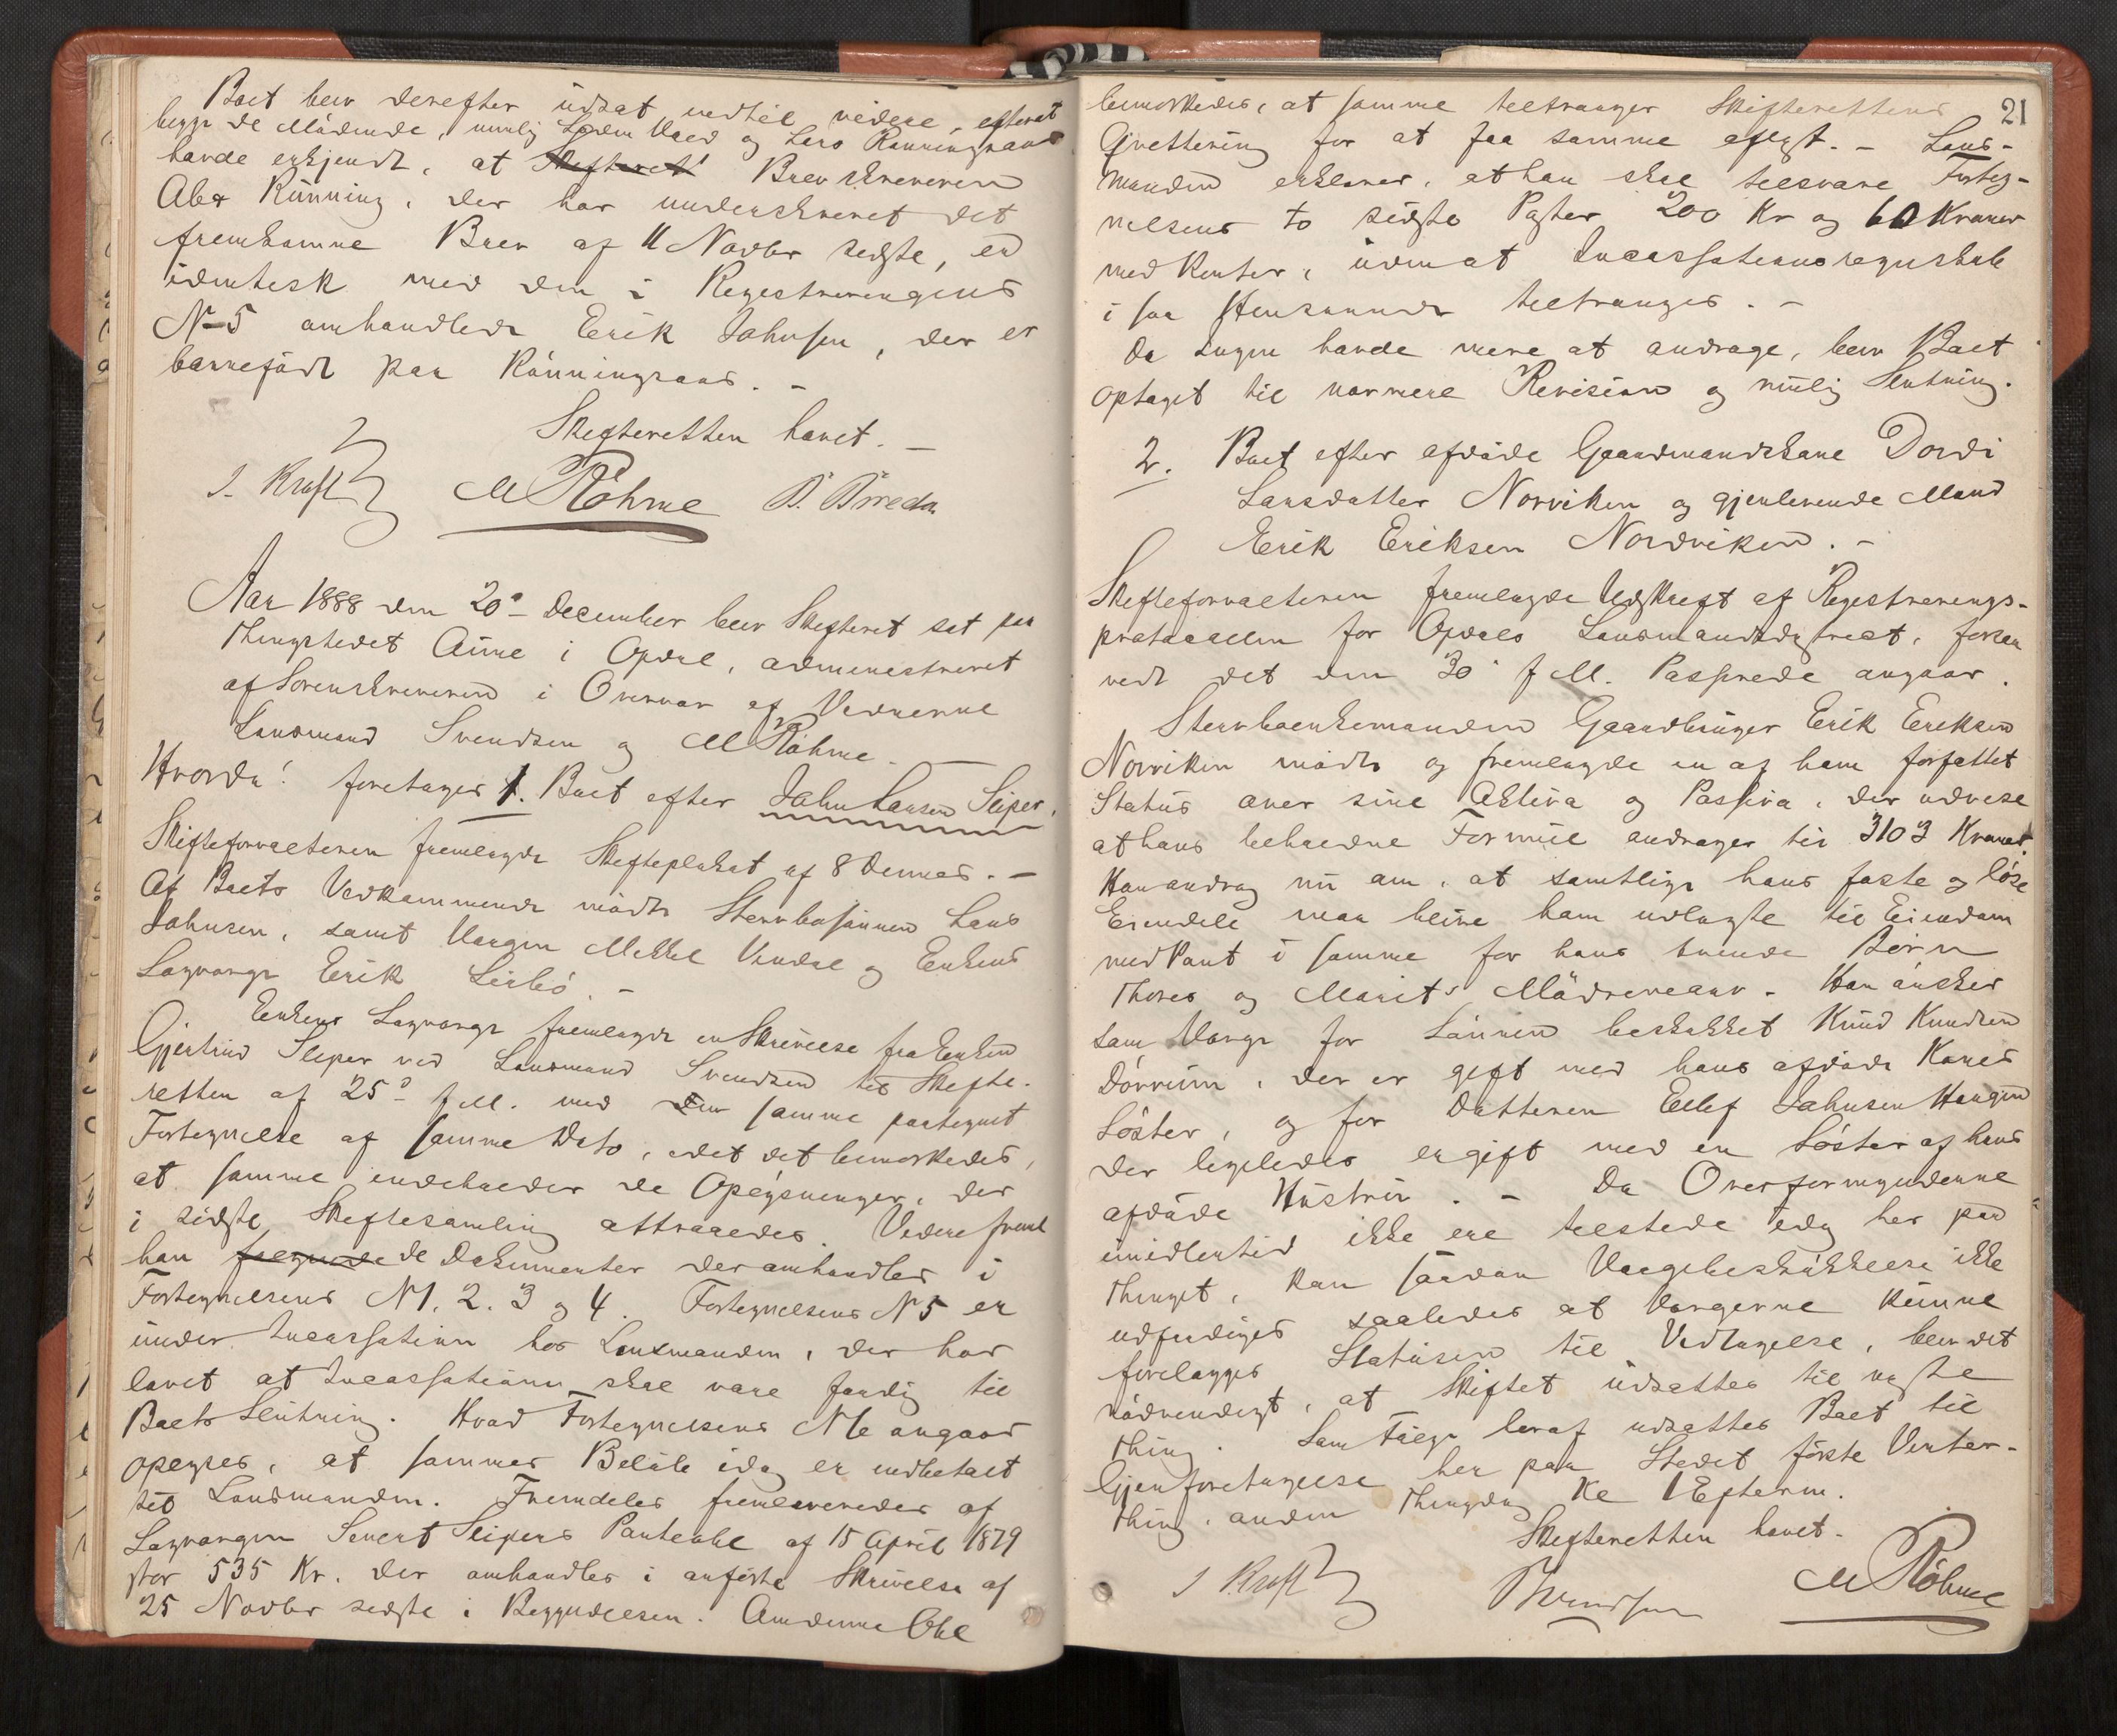 Boet blev derefter udsat indtil videre, efterat
begge de Mødende, nemlig Vaed og Lars Rønningsaas
havde erkjendt, at Skifteret Brevskriveren
Rønning, der har underskrevet det
fremkomne Brev af 11 Novbr sidste, er
identisk med den i Registreringens
No 5 omhandlede Erik Johnsen, der er
barnefødt paa Rønningsaas. –
Skifteretten hævet. –
J. Kraft M Røhme
Aar 1888 den 20de December blev Skifteret sat paa
Thingstedet Aune i Opdal, administreret
af Sorenskriveren i Overvær af Vidnerne
Lensmand Svendsen og M Røhme. –
Hvorda! foretages 1. Boet efter John Larsen Sliper.
Skifteforvalteren fremlagde Skifteplakat af 8 dennes. –
Af Boets Vedkommende mødte Stervbosønnen Lars
Johnsen, samt Værgen Mikkel Vindal og Enkens
Lagværge Erik Lisbø. –
Enkens Lagværge fremlagde en Skrivelse fra Enken
Gjertrud Sliper ved Lensmand Svendsen til Skifte-
retten af 25de f. M. med den samme paategnet
Fortegnelse af samme Dato, idet det bemærkedes,
at samme indeholder de Oplysninger, der
i sidste Skiftesamling attraaedes. Videre freml
han fregnede de Dokumenter der omhandles i
Fortegnelsens N 1. 2. 3 og 4. Fortegnelsens N 5 er
under Incassation hos Lensmanden, der har
lovet at Incassationen skal være færdig til
Boets Slutning. Hvad Fortegnelsens N 6 angaar
oplyses, at sammes Beløb idag er indbetalt
til Lensmanden. Fremdeles fremleveredes af
Lagværgen Sivert Slipers Panteobl af 15 April 1879
stor 535 Kr. der omhandles i anførte Skrivelse af
25 Novbr sidste i Begyndelsen. Om denne Obl
21
bemærkedes, at samme tiltrænger Skifterettens
Qvittering for at faa samme aflyst. – Lens-
manden erklærer, at han skal tilsvare Forteg-
nelsens to sidste Poster 200 Kr og 60 Kroner
med Renter, uden at Incassationsregnskab
i saa Henseende tiltrænges. –
Da Ingen havde mere at andrage, blev Boet
optaget til nærmere Revision og mulig Slutning.
2. Boet efter afdøde Gaardmandskone Dordi
Larsdatter Norviken og gjenlevende Mand
Erik Eriksen Nordviken. –
Skifteforvalteren fremlagde Udskrift af Registrerings-
protocollen for Opdals Lensmandsdistrict, forsaa
vidt det den 30 f M. Passerede angaar.
Stervboenkemanden Gaardbruger Erik Eriksen
Norviken mødte og fremlagde en af ham forfattet
Status over sine Aktiva og Passiva, der udvise
at hans beholdne Formue andrager til 3103 Kroner.
Han androg nu om, at samtlige hans faste og løse
Eiendele maa blive ham udlagte til Eiendom
mod Pant i samme for hans tvende Børn
Thores og Marits Mødrenearv. – Han ønsker
som Værge for Sønnen beskikket Knud Knudsen
Dørrum, der er gift med hans afdøde Kones
Søster, og for Datteren Ellef Johnsen Haugen
der ligeledes er gift med en Søster af hans
afdøde Hustru. – Da Overformynderne
imidlertid ikke ere tilstede idag her paa
Thinget, kan saadan Værgebeskikkelse ikke
udfærdiges saaledes at Værgerne kunne
forelægges Statusen til Vedtagelse, blev det
nødvendigt, at Skiftet udsættes til næste
Thing. Som Følge heraf udsættes Boet til
Gjenforetagelse her paa Stedet første Vinter-
thing, anden Thingdag Kl 1 Efterm.
Skifteretten hævet. –
J Kraft Svendsen M Røhme